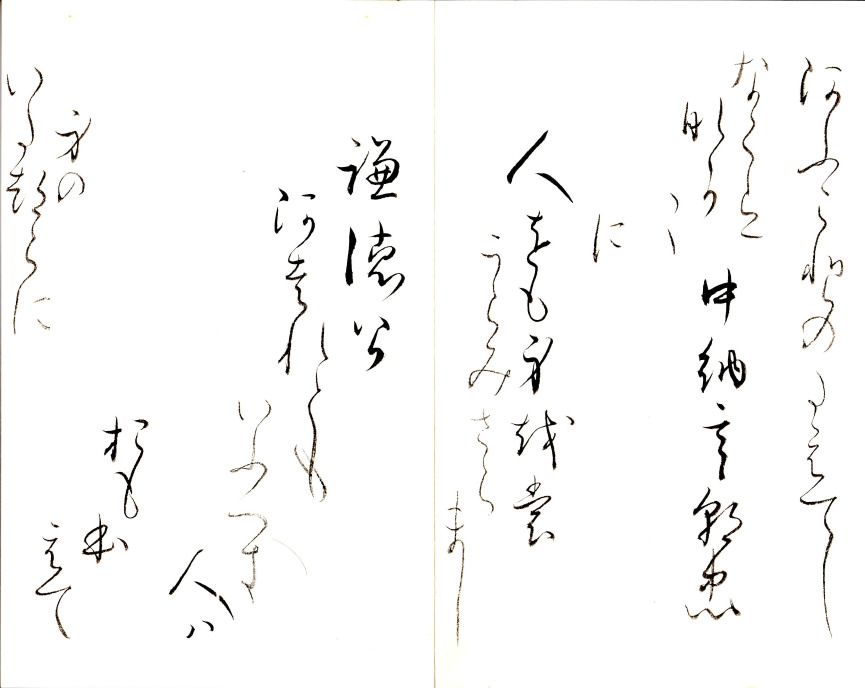 阿ふことのたえてし
なくは
中納言朝忠
に
人をも身越裳
うらみさら
まし
謙徳公
阿者れとも
いふへき
人ハ
おも本
えて
身の
いた都らに